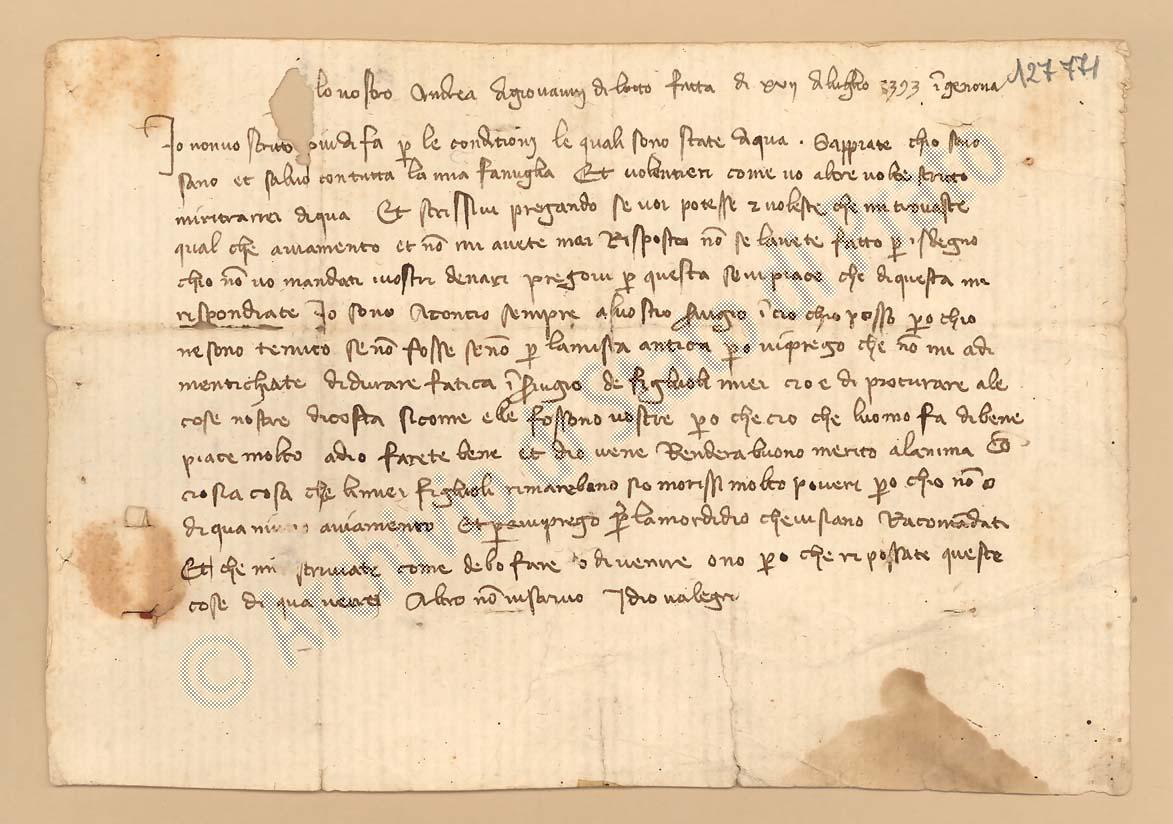 127 771
lo vostro Andrea di giovanni di lotto fatta di xvij di luglio 1393 i genova
Io non vo scritto piu di fa p le conditioni le quali sono state di qua . Sappiate chio sono
sano et salvo con tutta la mia famiglia Et volentieri come vo altre volte scritto
mi ritrarrei di qua Et scrissivi pregando se voi potesse & voleste che mi trovaste
qual che aviamento et no mi avete mai Risposto no se lavete fatto p isdegno
chio no vo mandati i vostri denari pregovi p questa se vi piace che di questa mi
rispondiate Io sono Aconcio sempre al vostro servigio i cio chio posso po chio
ne sono tenuto se no fosse se no p lamista anticha po vi prego che no mi adi
mentichiate di durare fatica i servigio de figliuoli miei cio e di procurare a le
cose nostre di costa si come elle fossono vostre po che cio che luomo fa di bene
piace molto a dio farete bene et dio vene Rendera buono merito a lanima Co
cio sia cosa che li miei figliuoli rimarebano sio morissi molto poveri po chio no o
di qua aviamento Et po vi prego p lamor di dio che vi siano Racomandati
Et che mi scriviate come debo fare o di venire o no po che ripossate queste
cose di qua verrei Altro no vi scrivo Idio vallegri
© Archivio di Stato di Prato